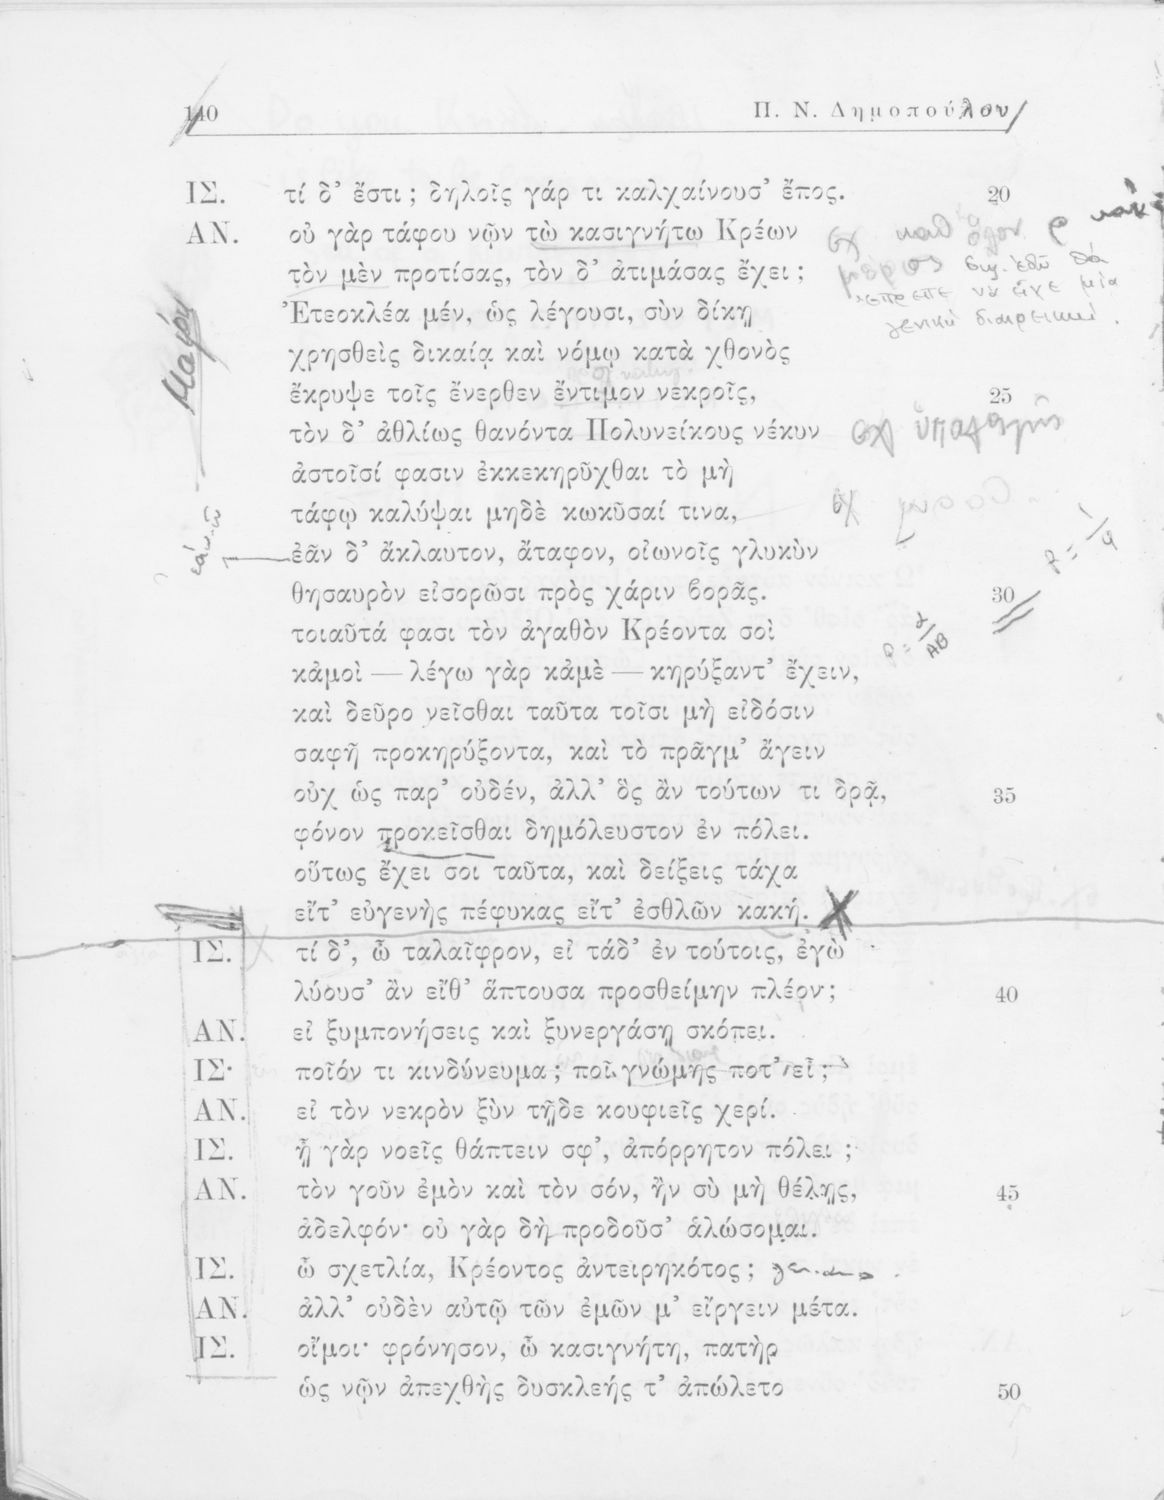 140 Π. Ν. Δημοπούλου
ΙΣ. τί δ' ἔστι; δηλοῖς γάρ τι καλχαίνουσ' ἔπος. 20
ΑΝ. οὐ γὰρ τάφου νῷν τὼ κασιγνήτω Κρέων
τὸν μὲν προτίσας, τὸν δ' ἀτιμάσας ἔχει;
Ἐτεοκλέα μέν, ὡς λέγουσι, σὺν δίκῃ
χρησθεὶς δικαίᾳ καὶ νόμῳ κατὰ χθονὸς
ἔκρυψε τοῖς ἔνερθεν ἔντιμον νεκροῖς, 25
τὸν δ' ἀθλίως θανόντα Πολυνείκους νέκυν
ἀστοῖσί φασιν ἐκκεκηρῦχθαι τὸ μὴ
τάφῳ καλύψαι μηδὲ κωκῦσαί τινα,
ἐᾶν δ' ἄκλαυτον, ἄταφον, οἰωνοῖς γλυκὺν
θησαυρὸν εἰσορῶσι πρὸς χάριν βορᾶς. 30
τοιαῦτά φασι τὸν ἀγαθὸν Κρέοντα σοὶ
κἀμοὶ — λέγω γὰρ κἀμὲ — κηρύξαντ' ἔχειν,
καὶ δεῦρο νεῖσθαι ταῦτα τοῖσι μὴ εἰδόσιν
σαφῆ προκηρύξοντα, καὶ τὸ πρᾶγμ' ἄγειν
οὐχ ὡς παρ' οὐδέν, ἀλλ' ὃς ἂν τούτων τι δρᾷ, 35
φόνον προκεῖσθαι δημόλευστον ἐν πόλει.
οὕτως ἔχει σοι ταῦτα, καὶ δείξεις τάχα
εἴτ' εὐγενὴς πέφυκας εἴτ' ἐσθλῶν κακή.
ΙΣ. τί δ', ὦ ταλαῖφρον, εἰ τάδ' ἐν τούτοις, ἐγὼ
λύουσ' ἂν εἴθ' ἅπτουσα προσθείμην πλέον; 40
ΑΝ. εἰ ξυμπονήσεις καὶ ξυνεργάσῃ σκόπει.
ΙΣ. ποῖόν τι κινδύνευμα; ποῖ γνώμης ποτ' εἶ;
ΑΝ. εἰ τὸν νεκρὸν ξὺν τῇδε κουφιεῖς χερί.
ΙΣ. ἦ γὰρ νοεῖς θάπτειν σφ', ἀπόρρητον πόλει;
ΑΝ. τὸν γοῦν ἐμὸν καὶ τὸν σόν, ἢν σὺ μὴ θέλῃς, 45
ἀδελφόν· οὐ γὰρ δὴ προδοῦσ' ἁλώσομαι.
ΙΣ. ὦ σχετλία, Κρέοντος ἀντειρηκότος;
ΑΝ. ἀλλ' οὐδὲν αὐτῷ τῶν ἐμῶν μ' εἴργειν μέτα.
ΙΣ. οἴμοι· φρόνησον, ὦ κασιγνήτη, πατὴρ
ὡς νῷν ἀπεχθὴς δυσκλεής τ' ἀπώλετο 50